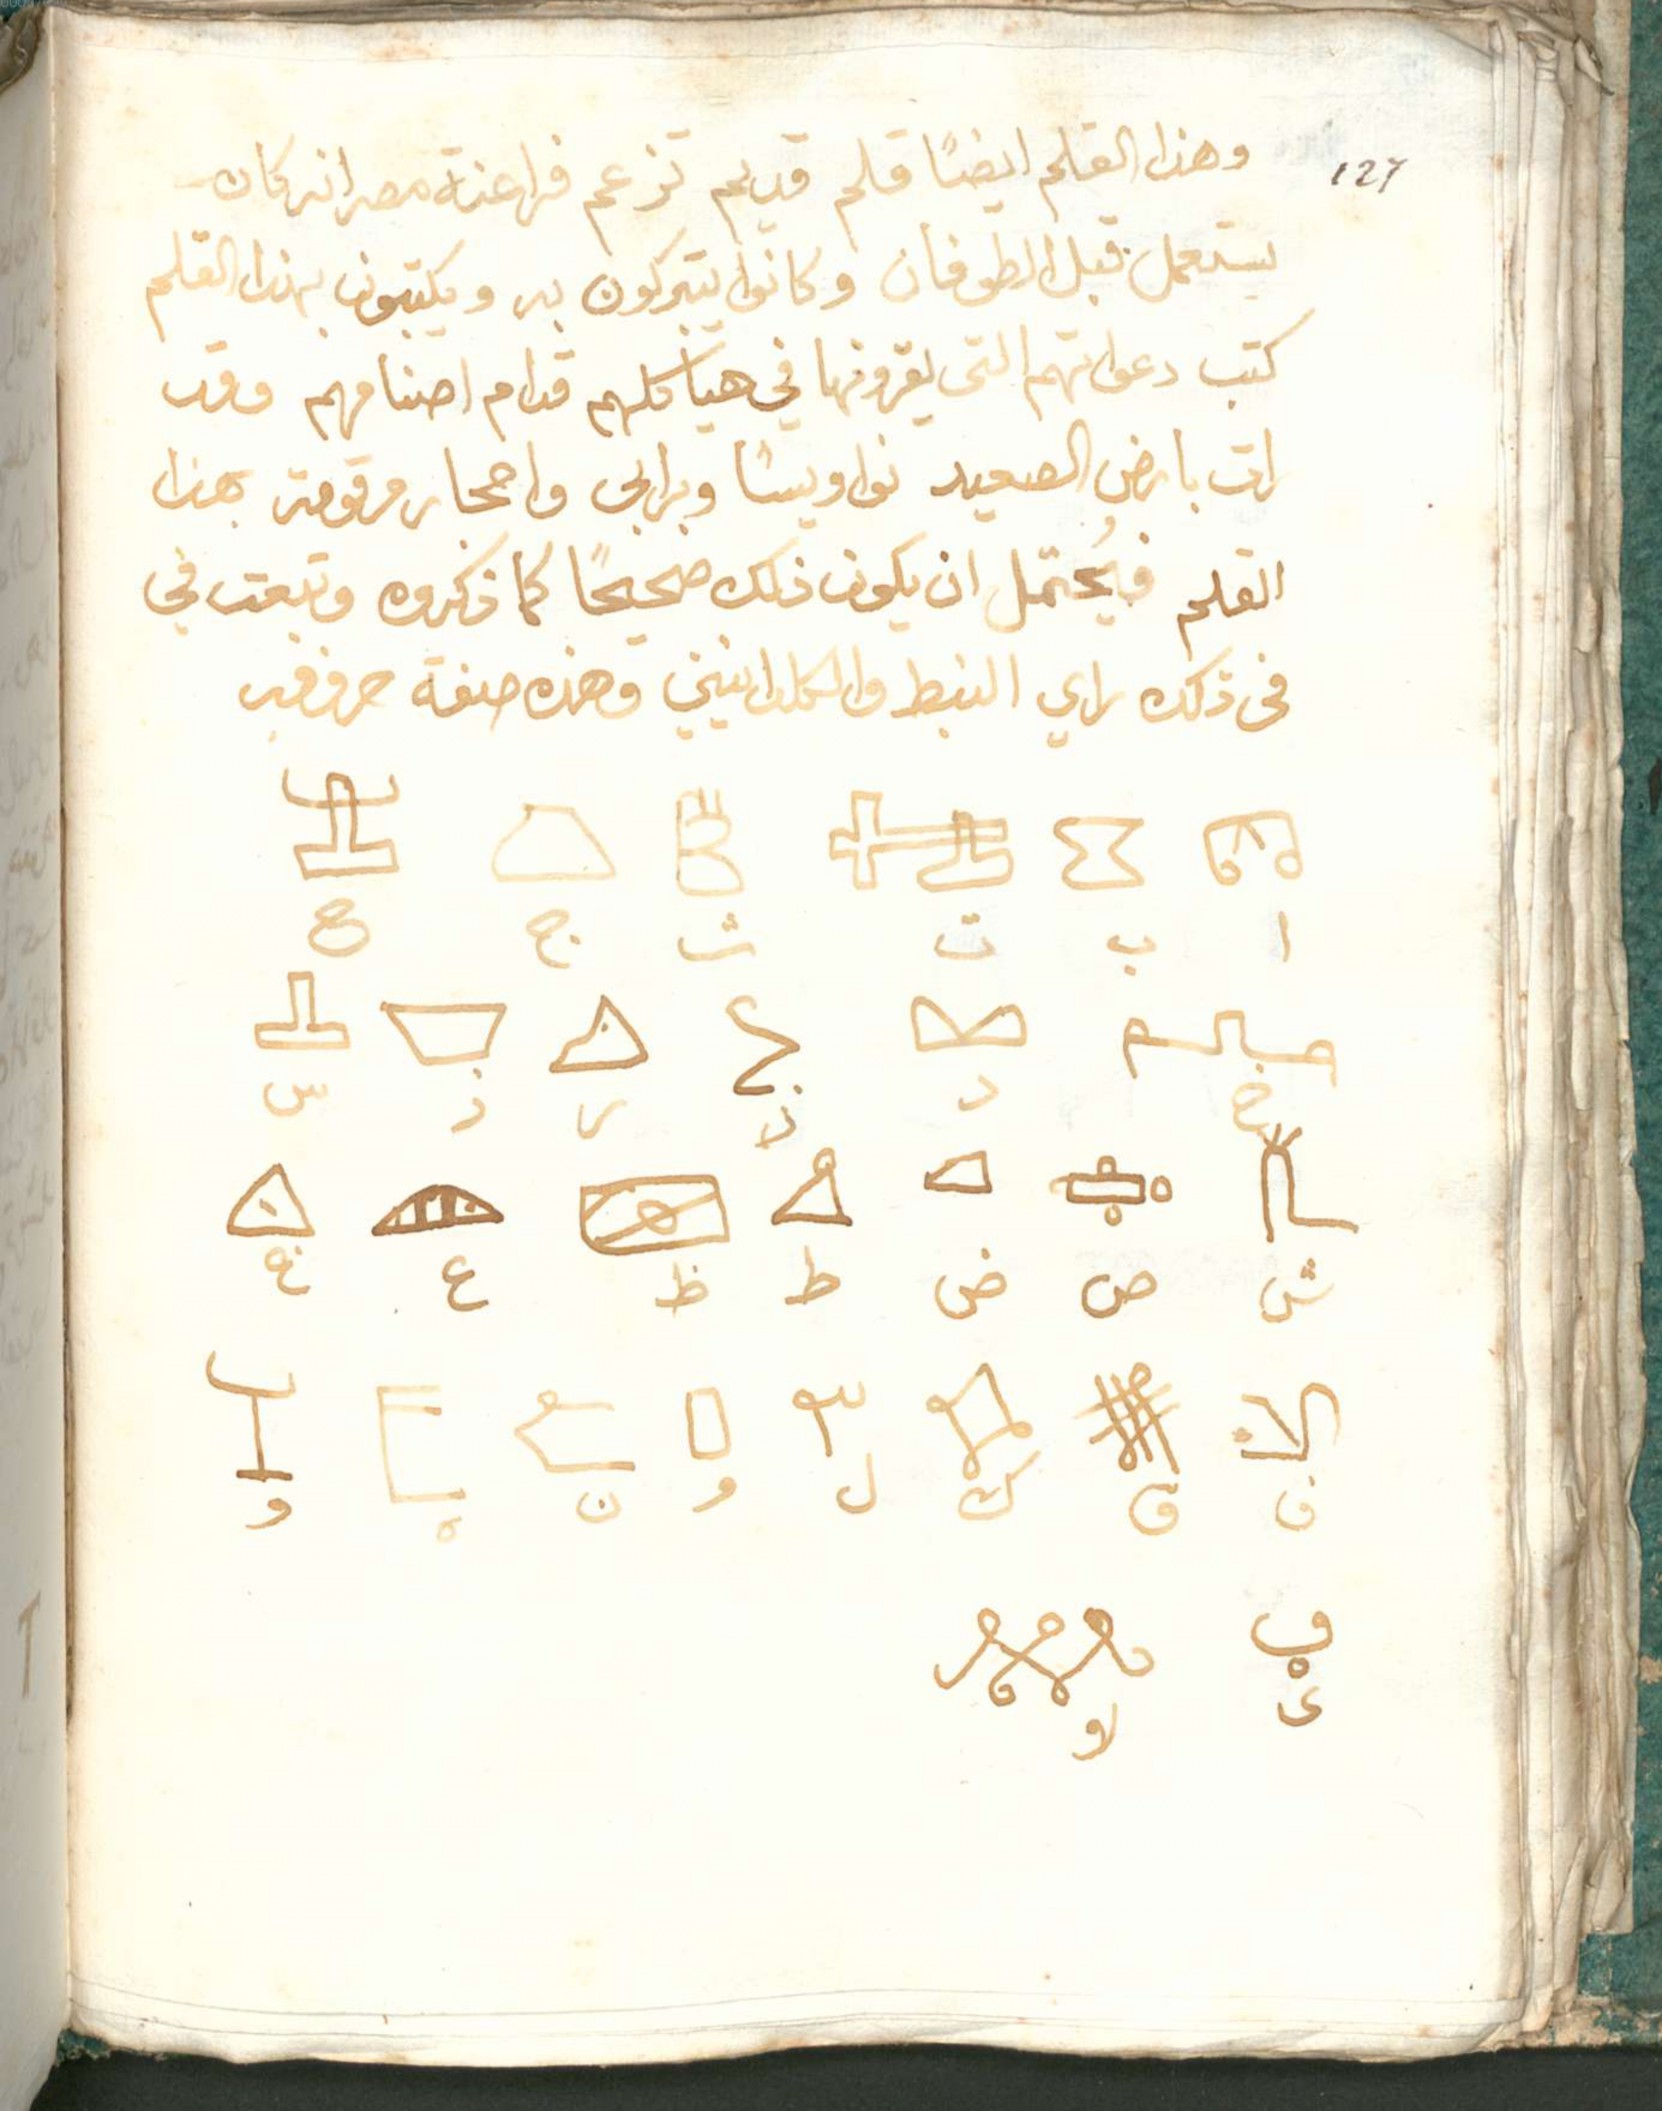 127
وهذا القلم ايضًا قلم قديم تزعم فراعنة مصر انه كان
يستعمل قبل الطوفان وكانوا يتبركون به ويكتبون بهذا القلم
كتب دعواتهم التى يقرونها في هياكلهم قدام اصنامهم وقد
رات بارض الصعيد نواويسا وبرابى واحجار مرقومة بهذا
القلم فيُحتمل ان يكون ذلك صحيحًا كما ذكروه وتبعت في
فى ذلك راي النبط والكلدانيين وهذه صفة حروفه
ا ب ت ث ج ح
خ د ذ ر ز س
ش ص ض ط ظ ع غ
ف ق ك ل و ن ه و
ى لا